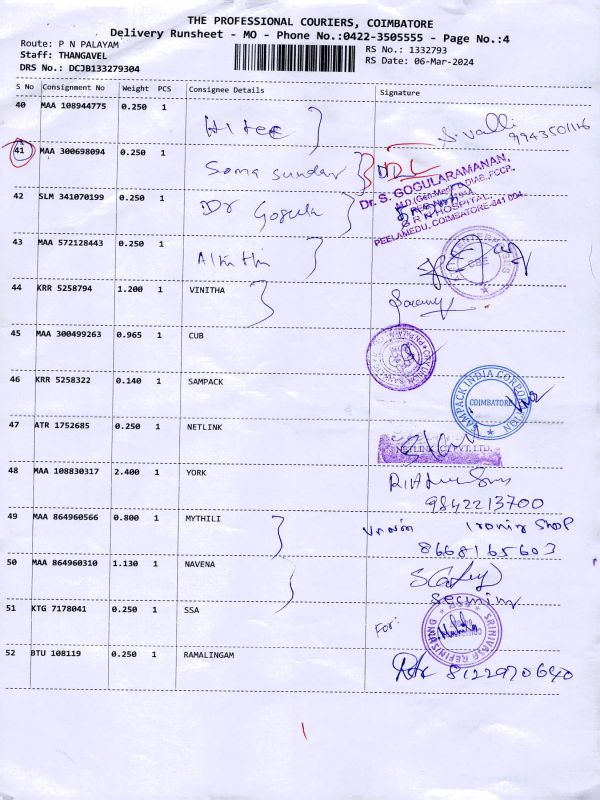 THE PROFESSIONAL COURIERS, COIMBATORE
Delivery Runsheet - MO - Phone No.:0422-3505555 - Page No.:4
Route: P N PALAYAM
Staff: THANGAVEL
DRS No.: DCJB133279304
RS No.: 1332793
RS Date: 06-Mar-2024
S No Consignment No Weight PCS Consignee Details Signature
40 MAA 108944775 0.250 1
S. Valli
9943501116
41 MAA 300698094 0.250 1 Soma Sundar
Dr. S. GOGULARAMANAN,
42 SLM 341070199 0.250 1 Dr Gogula
S R N HOSPITAL,
PEELAMEDU, COIMBATORE-641 004.
43 MAA 572128443 0.250 1
44 KRR 5258794 1.200 1 VINITHA
45 MAA 300499263 0.965 1 CUB
46 KRR 5258322 0.140 1 SAMPACK
SAMPACK INDIA CORPORATION
COIMBATORE
47 ATR 1752685 0.250 1 NETLINK
48 MAA 108830317 2.400 1 YORK
9842213700
49 MAA 864960566 0.800 1 MYTHILI
Shop
8668165603
50 MAA 864960310 1.130 1 NAVENA
51 KTG 7178041 0.250 1 SSA
For:
52 BTU 108119 0.250 1 RAMALINGAM
8122970640